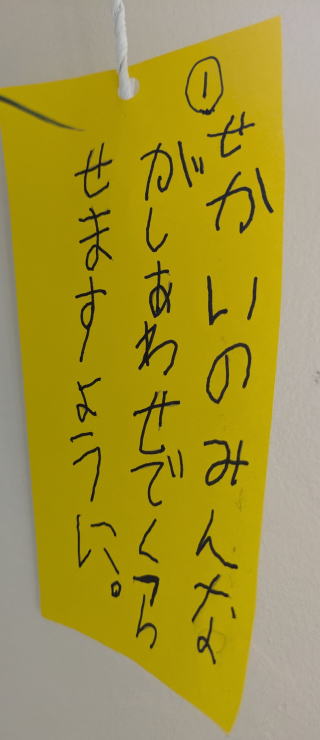 ①せかいのみんな
がしあわせでくら
せますように。